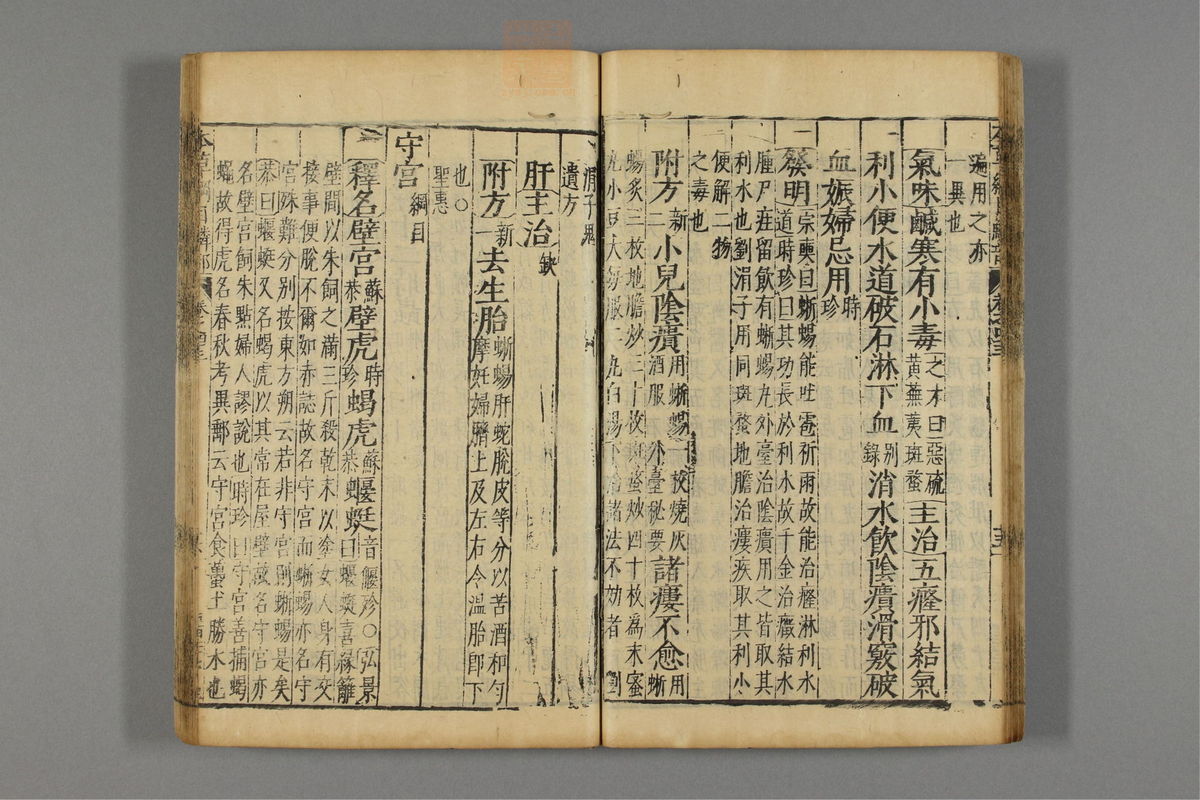 遍用之亦
一異也
氣味鹹寒有小毒之才曰惡硫黃蕪荑斑蝥主治五癃邪結氣
利小便水道破石淋下血別錄消水飲陰㿉滑竅破
血娠婦忌用時珍
發明宗奭曰蜥蜴能吐雹祈雨故能治癃淋利水
道時珍曰其功長於利水故千金治癥結水
腫尸疰留飲有蜥蜴丸外臺治陰㿉用之皆取其
利水也劉涓子用同斑蝥地膽治瘻疾取其利小
便解二物
之毒也
附方新二小兒陰㿉用蜥蜴一枚燒灰酒服外臺秘要諸瘻不愈用蜥
蜴炙三枚地膽炒三十枚斑蝥炒四十枚為末蜜
丸小豆大每服二丸白湯下治諸法不効者劉
涓子鬼
遺方
肝主治缺
附方新一去生胎蜥蜴肝蛇脫皮等分以苦酒和勻
摩妊婦臍上及左右令溫胎即下
也○
聖惠
守宮綱目
釋名壁宮蘇恭壁虎時珍蝎虎蘇恭蝘蜓音偃殄○弘景曰蝘蜓喜緣籬
壁間以朱飼之滿三斤殺乾末以塗女人身有交
接事便脫不爾如赤誌故名守宮而蜥蜴亦名守
宮殊難分別按東方朔云若非守宮則蜥蜴是矣
恭曰蝘蜓又名蝎虎以其常在屋壁故名守宮亦
名壁宮飼朱點婦人謬說也時珍曰守宮善捕蝎
蠅故得虎名春秋考異郵云守宮食蠆土勝水也